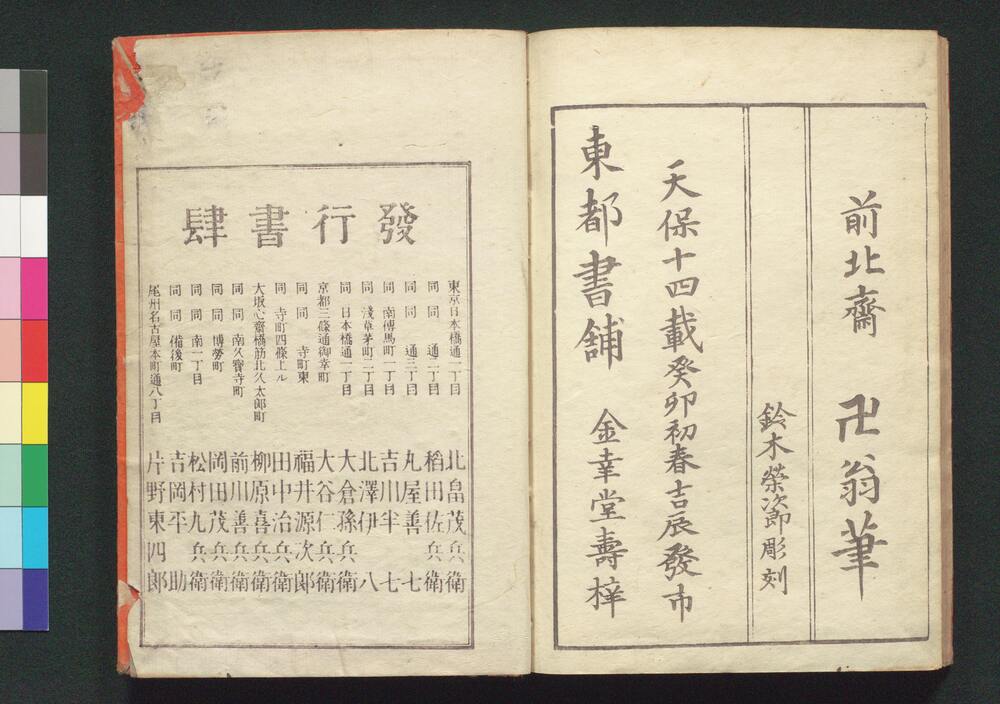 前北齋 卍翁筆
鈴木榮次郎彫刻
天保十四載癸卯初春吉辰發市
東都書舗 金幸堂壽梓
發行書肆
東京日本橋通一丁目 北畠茂兵衛
同 同 通二丁目 稻田佐兵衛
同 同 通三丁目 丸屋善七
同 南傳馬町一丁目 吉川半七
同 淺草茅町二丁目 北澤伊八
同 日本橋通一丁目 大倉孫兵衛
京都三條通御幸町 大谷仁兵衛
同 同 寺町東 福井源次郎
同 寺町四條上ル 田中治兵衛
大坂心齋橋筋北久太郎町 柳原喜兵衛
同 同 南久寶寺町 前川善兵衛
同 同 博勞町 岡田茂兵衛
同 同 南一丁目 松村九兵衛
同 同 備後町 吉岡平助
尾州名古屋本町通八丁目 片野東四郎